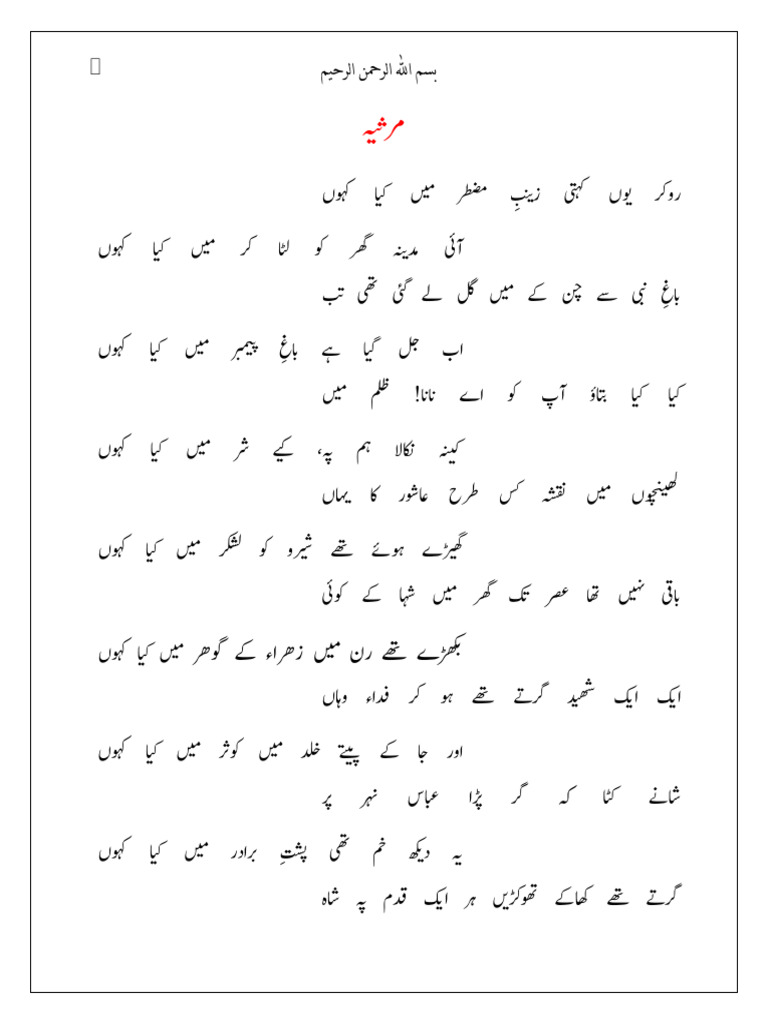 بسم الله الرحمن الرحیم
مرثیہ
روکر یوں کہتی زینبِ مضطر میں کیا کہوں
آئی مدینہ گھر کو لٹا کر میں کیا کہوں
باغِ نبی سے چن کے میں گل لے گئی تھی تب
اب جل گیا ہے باغِ پیمبر میں کیا کہوں
کیا کیا بتاؤ آپ کو اے نانا! ظلم میں
کینہ نکالا ہم پہ، کیے شر میں کیا کہوں
کھینچوں میں نقشہ کس طرح عاشور کا یہاں
گھیڑے ہوئے تھے شیرو کو لشکر میں کیا کہوں
باقی نہیں تھا عصر تک گھر میں شہا کے کوئی
بکھڑے تھے رن میں زھراء کے گوھر میں کیا کہوں
ایک ایک شھید گرتے تھے ہو کر فداء وہاں
اور جا کے پیتے خلد میں کوثر میں کیا کہوں
شانے کٹا کہ گر پڑا عباس نہر پر
یہ دیکھ خم تھی پشتِ برادر میں کیا کہوں
گرتے تھے کھاکے ٹھوکڑیں ہر ایک قدم پہ شاہ